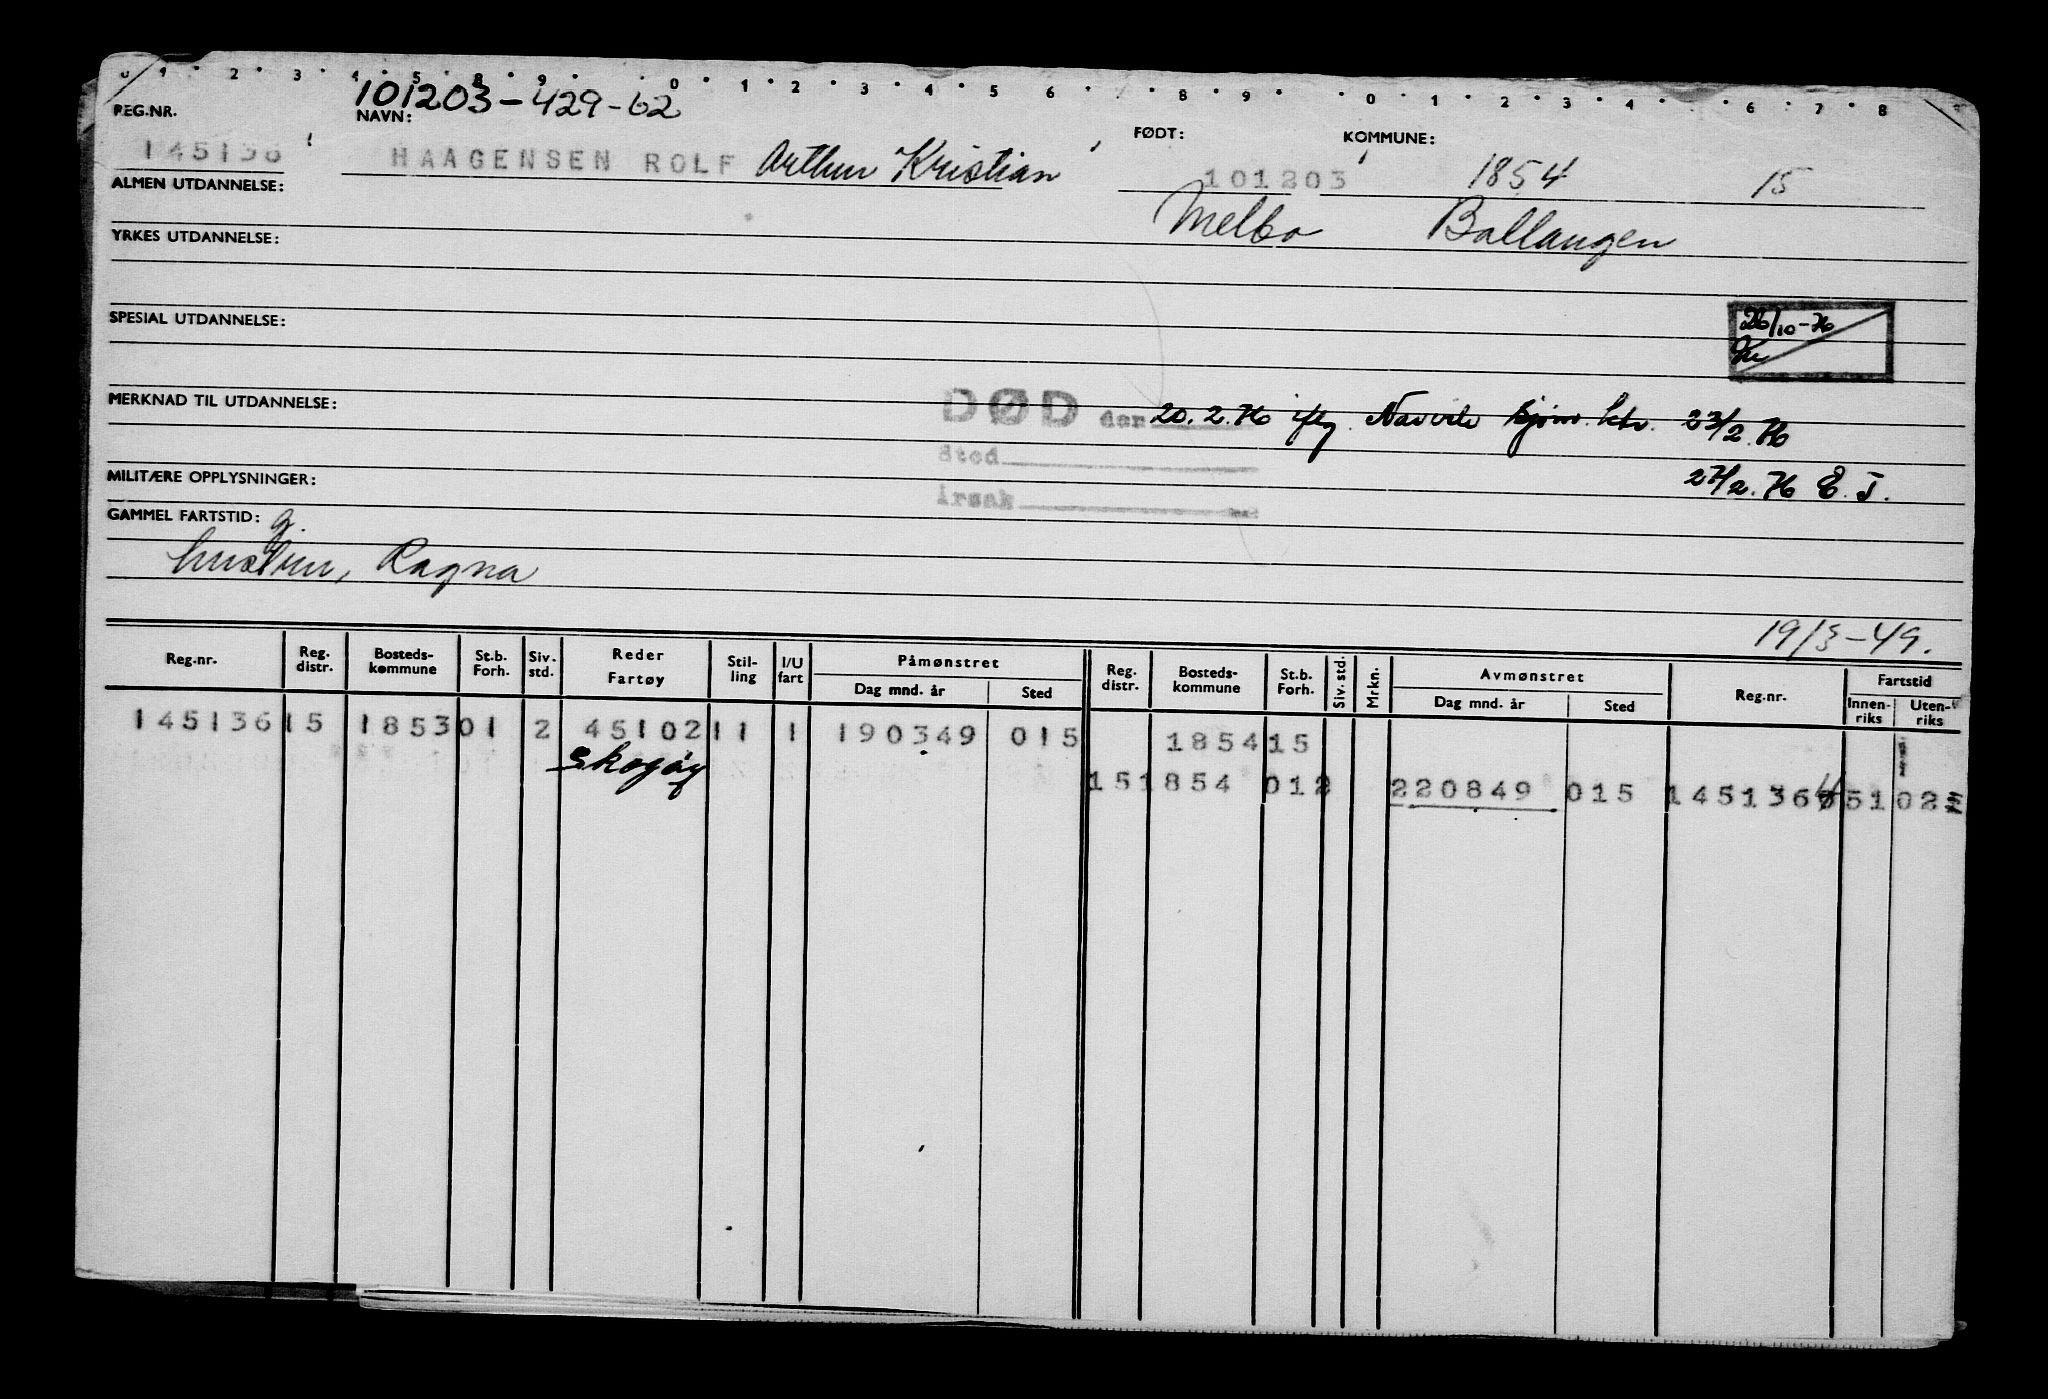 101203-429-62
REG.NR. NAVN: FØDT: KOMMUNE:
145136 HAAGENSEN ROLF Arthur Kristian 101203 1854 15
ALMEN UTDANNELSE:
Melbo Ballangen
YRKES UTDANNELSE:
SPESIAL UTDANNELSE:
26/10-76
MERKNAD TIL UTDANNELSE:
DØD den 20.2.76 iflg. Narvik sjøm. ktr. 23/2.76
Sted
Årsak
27/2.76 E. J.
MILITÆRE OPPLYSNINGER:
GAMMEL FARTSTID: g.
hustru, Ragna
19/3-49.
Reg.nr. Reg. distr. Bosteds-kommune St.b. Forh. Siv. std. Reder Fartøy Stil-ling I/U fart Påmønstret Dag mnd. år Sted Reg. distr. Bosteds-kommune St.b. Forh. Siv. std. Mrkn. Avmønstret Dag mnd. år Sted Reg.nr. Fartstid Innen-riks Uten-riks
145136 15 1853 01 2 45102 11 1 190349 015 1854 15
Skogøy
15 1854 01 2 220849 015 145136 4 5102